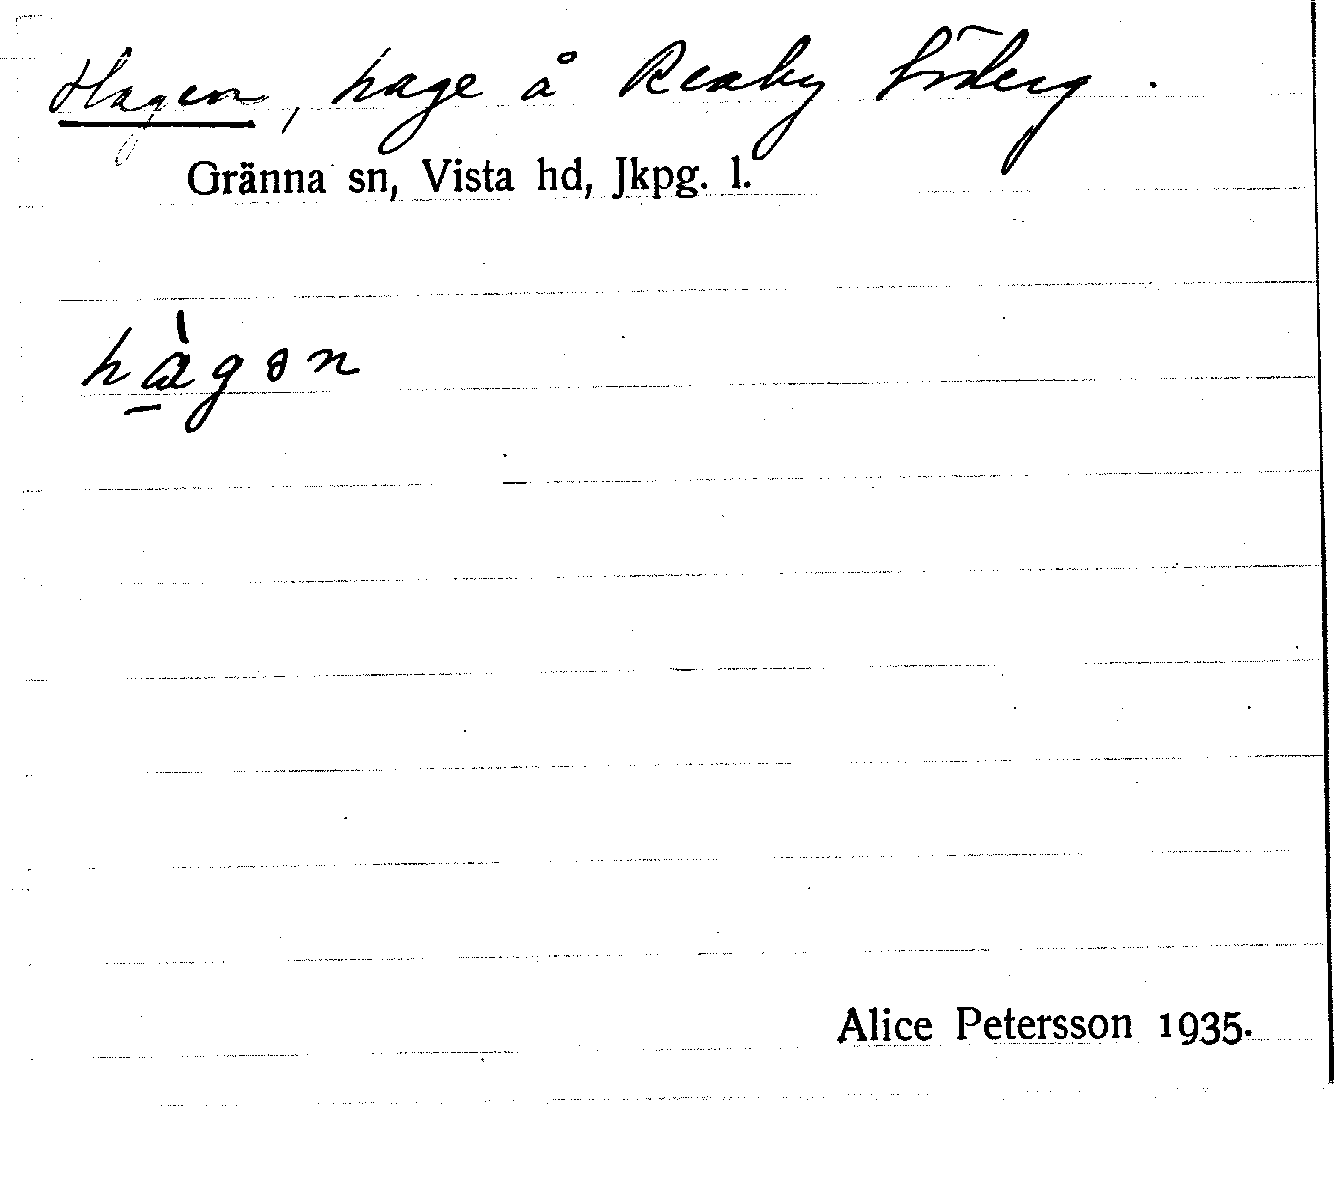 Hagen, hage å Reaby Söderg.
Gränna sn, Vista hd, Jkpg. l.
hàgən
Alice Petersson 1935.